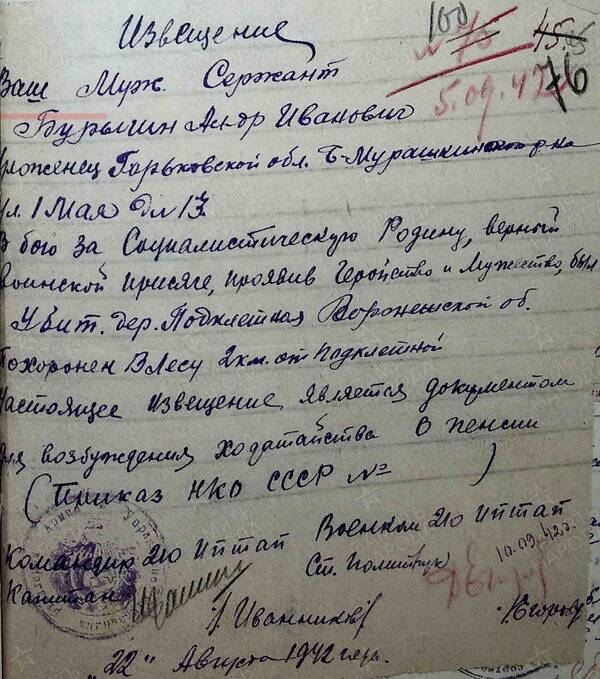 Извещение
100
№ 76
45.
5.09.42
76
Ваш Муж. Сержант
Бурыгин Алдр Иванович
уроженец Горьковской обл. Б-Мурашкинского р-на
ул. 1 Мая Дл 13.
В бою за Социалистическую Родину, верный
воинской присяге, проявив Геройство и Мужество, был
Убит. дер. Подклетная Воронежской об.
Похоронен В лесу 2км. от Подклетной
Настоящее извещение является документом
для возбуждения ходатайства о пенсии
(Приказ НКО СССР № )
Командир 210 ИПТАП Военком 210 ИПТАП
Капитан Ст. Политрук
10.09.42г.
/Иванников/ /Егоров/
"22" Августа 1942 года.